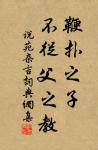 鞭扑之子
不从父之教
说苑杂言词典网集